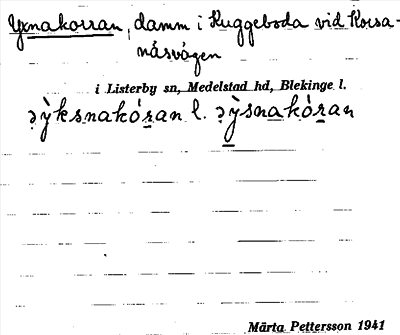 Yxnakorran, damm i Kuggeboda vid Korsa-
näsvägen
i Listerby sn, Medelstad hd, Blekinge l.
ə̣ỳksnakóṟan l. ə̣ỳsnakóṟan
Märta Pettersson 1941